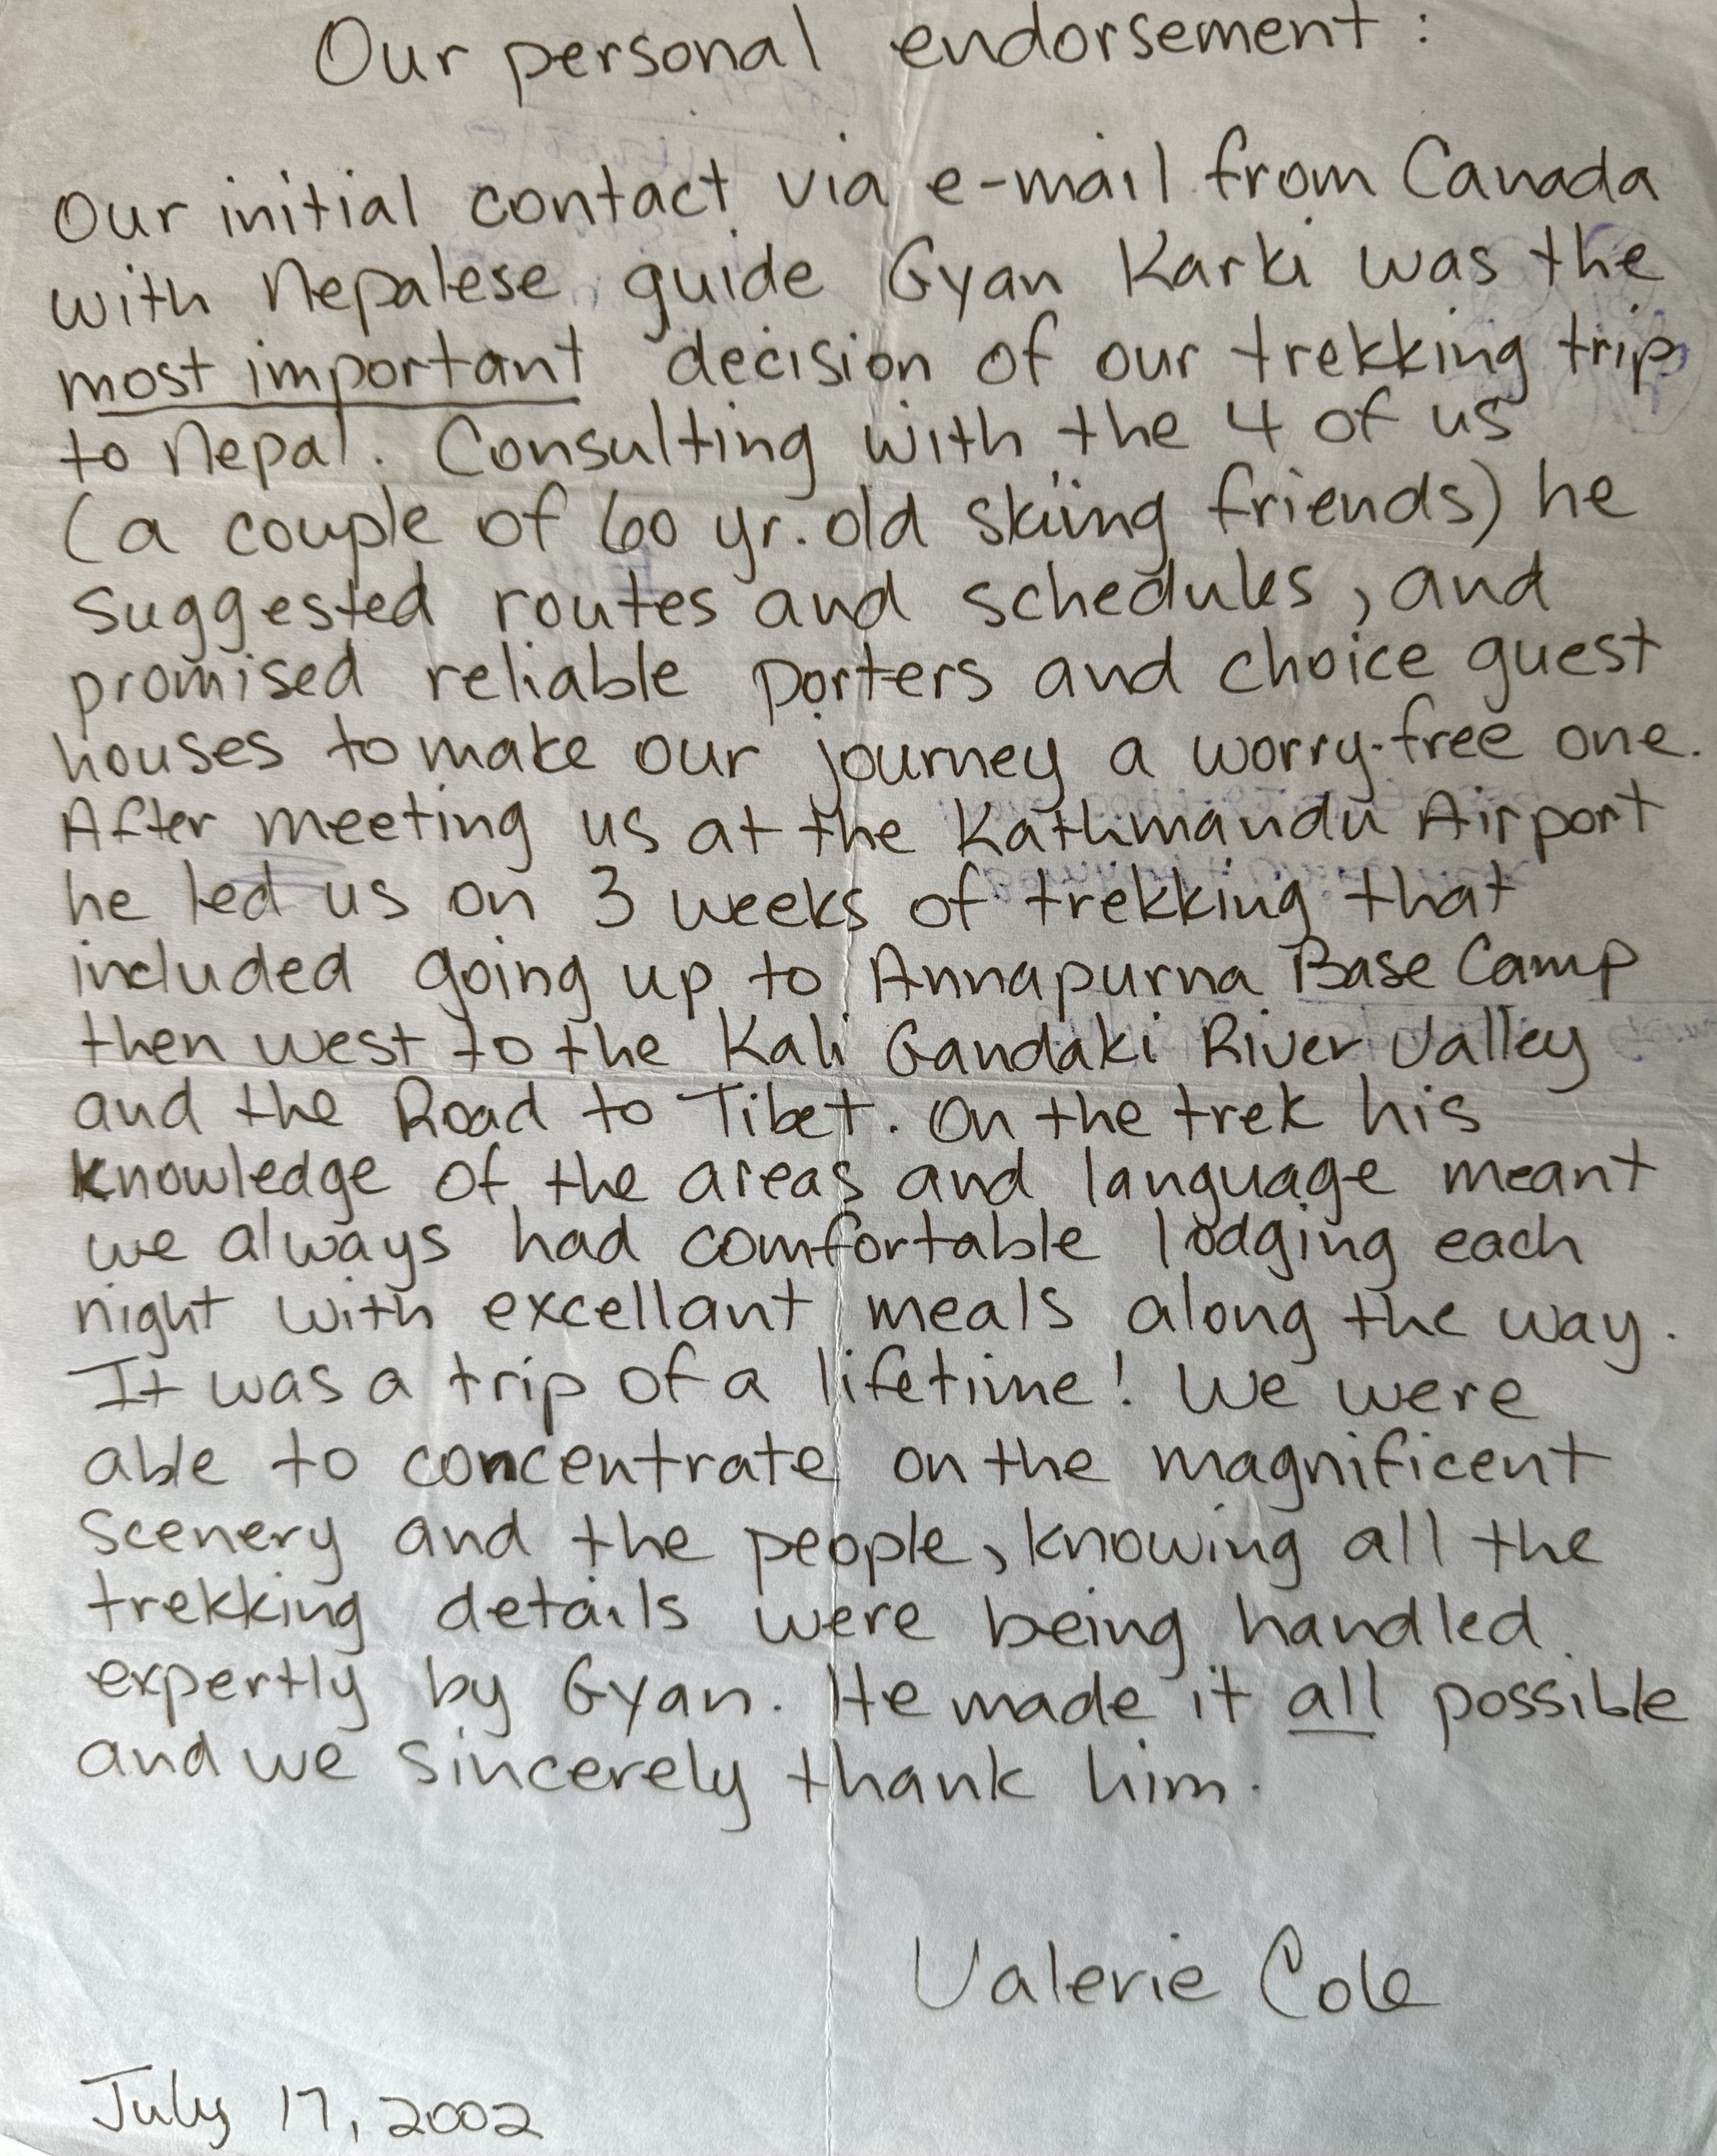 Our personal endorsement :
Our initial contact via e-mail from Canada
with Nepalese guide Gyan Karki was the
most important decision of our trekking trip
to Nepal. Consulting with the 4 of us
(a couple of 60 yr. old skiing friends) he
suggested routes and schedules, and
promised reliable porters and choice guest
houses to make our journey a worry-free one.
After meeting us at the Kathmandu Airport
he led us on 3 weeks of trekking that
included going up to Annapurna Base Camp
then west to the Kali Gandaki River Valley
and the Road to Tibet. On the trek his
knowledge of the areas and language meant
we always had comfortable lodging each
night with excellant meals along the way.
It was a trip of a lifetime! We were
able to concentrate on the magnificent
scenery and the people, knowing all the
trekking details were being handled
expertly by Gyan. He made it all possible
and we sincerely thank him.
Valerie Cole
July 17, 2002